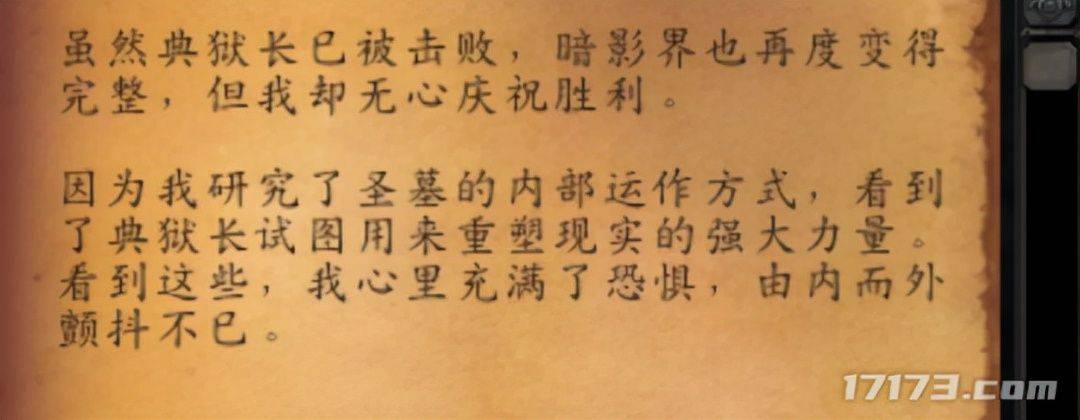 虽然典狱长已被击败，暗影界也再度变得
完整，但我却无心庆祝胜利。
因为我研究了圣墓的内部运作方式，看到
了典狱长试图用来重塑现实的强大力量。
看到这些，我心里充满了恐惧，由内而外
颤抖不已。
17173.com